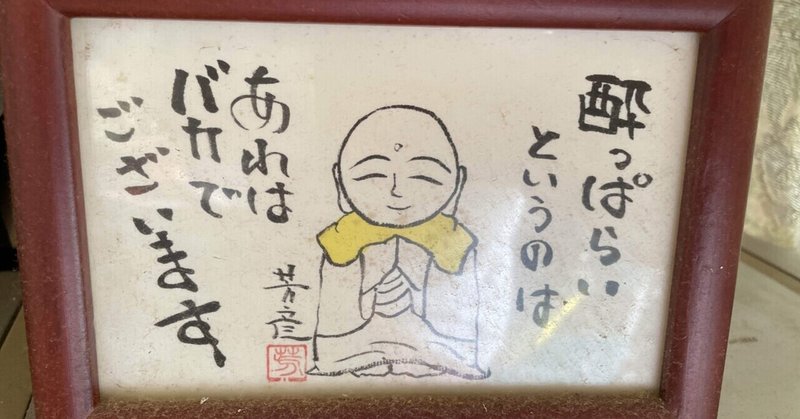 酔っぱらい
というのは
あれは
バカで
ございます
芳彦
芳